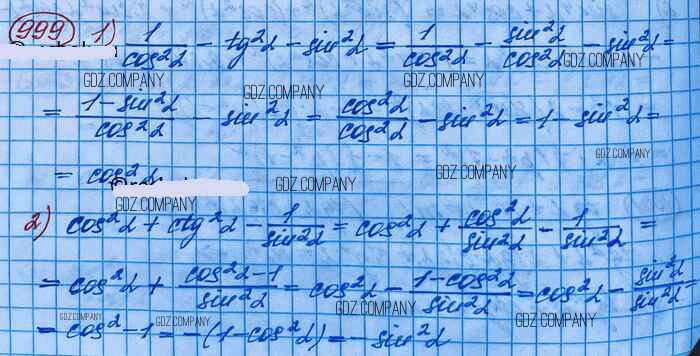 999 1) 1/cos²α - tg²α - sin²α = 1/cos²α - sin²α/cos²α - sin²α =
GDZ.COMPANY GDZ.COMPANY GDZ.COMPANY GDZ.COMPANY
= (1-sin²α)/cos²α - sin²α = cos²α/cos²α - sin²α = 1 - sin²α =
GDZ.COMPANY GDZ.COMPANY GDZ.COMPANY
= cos²α
GDZ.COMPANY GDZ.COMPANY GDZ.COMPANY
2) cos²α + ctg²α - 1/sin²α = cos²α + cos²α/sin²α - 1/sin²α =
GDZ.COMPANY
= cos²α + (cos²α-1)/sin²α = cos²α - (1-cos²α)/sin²α = cos²α - sin²α/sin²α =
GDZ.COMPANY GDZ.COMPANY GDZ.COMPANY GDZ.COMPANY
= cos² - 1 = -(1-cos²α) = -sin²α